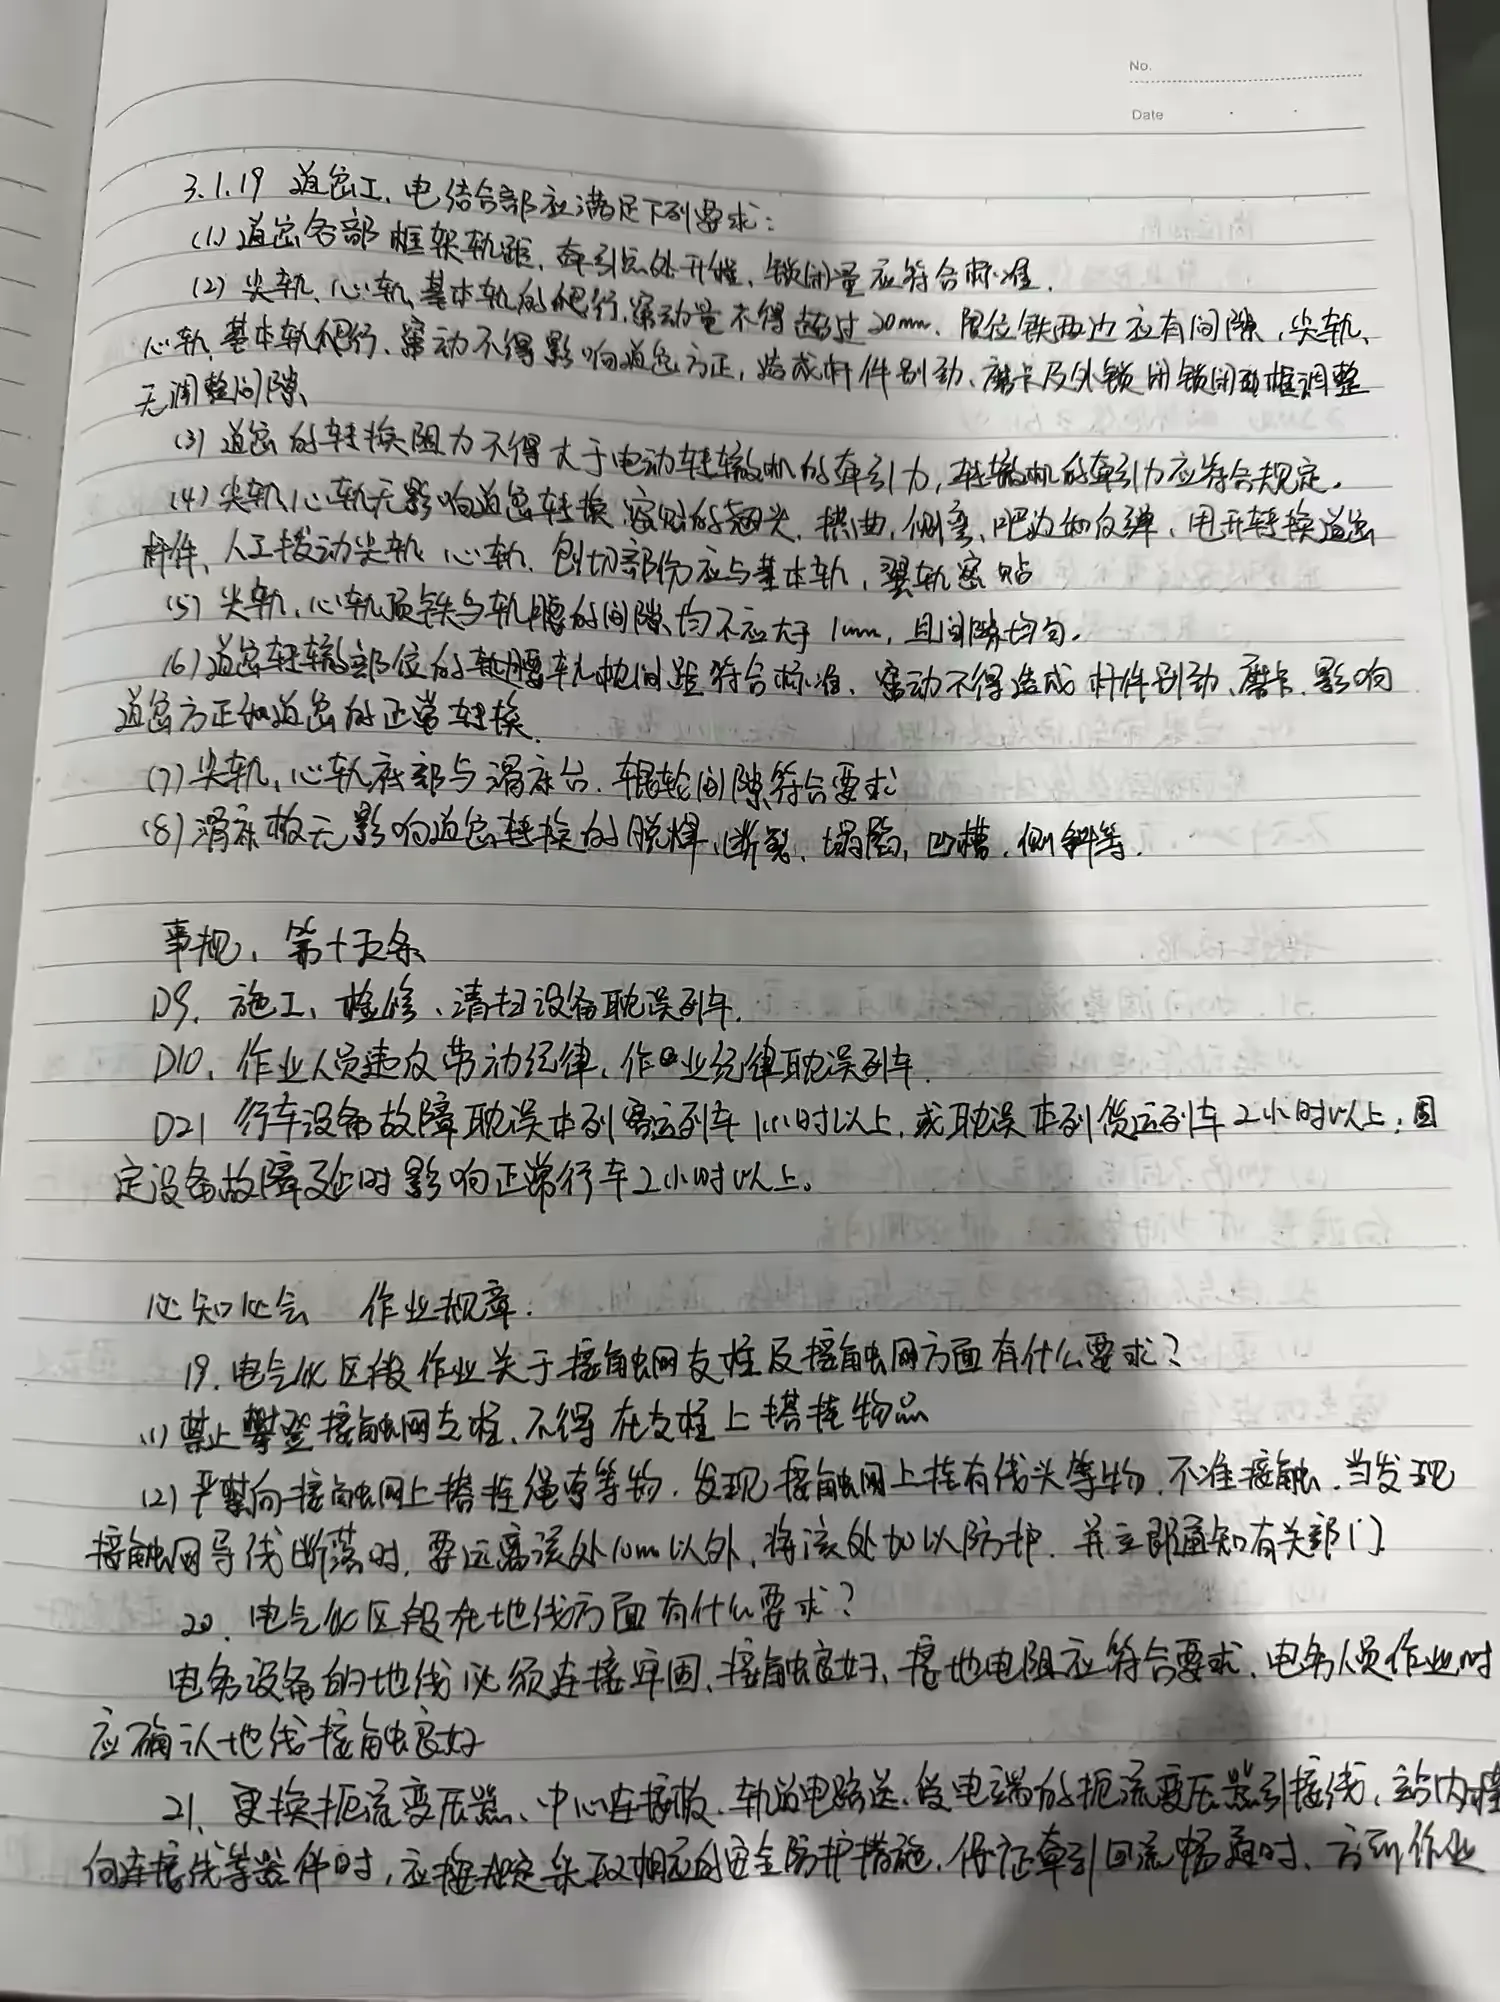 No.
Date
3.1.19 道岔工、电结合部应满足下列要求：
(1) 道岔各部框架轨距、牵引点处开程、锁闭量应符合标准.
(2) 尖轨、心轨、基本轨的爬行、窜动量不得超过20mm. 限位铁两边应有间隙, 尖轨、
心轨、基本轨爬行、窜动不得影响道岔方正, 造成杆件别劲、磨卡及外锁闭锁闭框调整
无调整间隙、
(3) 道岔的转换阻力不得大于电动转辙机的牵引力, 转辙机的牵引力应符合规定.
(4) 尖轨、心轨无影响道岔转换、密贴的翘头、拱曲、侧弯、肥边和反弹, 甩开转换道岔
杆件、人工拨动尖轨、心轨、刨切部份应与基本轨, 翼轨密贴
(5) 尖轨、心轨顶铁与轨腰的间隙均不应大于1mm, 且间隙均匀.
(6) 道岔转辙部位的轨腰车轨枕间距符合标准、窜动不得造成杆件别劲、磨卡、影响
道岔方正和道岔的正常转换.
(7) 尖轨、心轨底部与滑床台、辊轮间隙符合要求
(8) 滑床板无影响道岔转换的脱焊、断裂、塌陷、凹槽、侧斜等.
事规、第十五条
D9、施工、检修、清扫设备耽误列车.
D10、作业人员违反劳动纪律、作业纪律耽误列车.
D21 行车设备故障耽误本列客运列车1小时以上, 或耽误本列货运列车2小时以上; 固
定设备故障延时影响正常行车2小时以上。
必知必会 作业规章:
19. 电气化区段作业关于接触网支柱及接触网方面有什么要求?
(1) 禁止攀登接触网支柱、不得在支柱上搭挂物品
(2) 严禁向接触网上搭挂绳索等物. 发现接触网上挂有线头等物, 不准接触. 当发现
接触网导线断落时, 要远离该处10m以外, 将该处加以防护. 并立即通知有关部门
20. 电气化区段在地线方面有什么要求?
电务设备的地线必须连接牢固、接触良好、接地电阻应符合要求、电务人员作业时
应确认地线接触良好
21. 更换扼流变压器、中心连接板、轨道电路送、受电端的扼流变压器引接线、站内横
向连接线等器件时, 应按规定采取相应的安全防护措施、保证牵引回流畅通时、方可作业